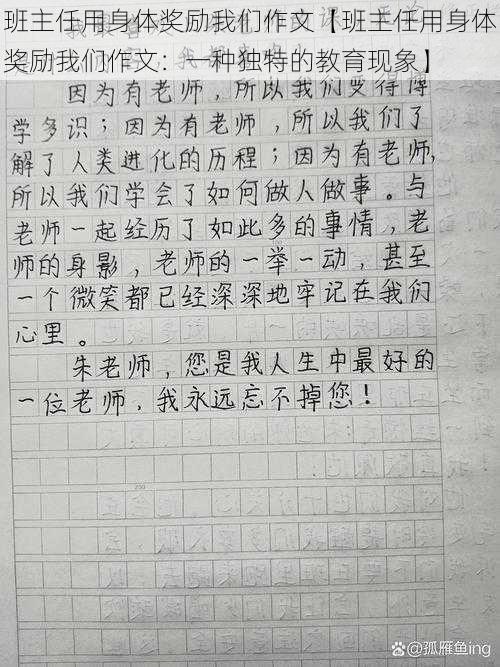 班主任用身体奖励我们作文【班主任用身体
奖励我们作文：一种独特的教育现象】
因为有老师，所以我们变得博
学多识；因为有老师，所以我们了
解了人类进化的历程；因为有老师，
所以我们学会了如何做人做事。与
老师一起经历了如此多的事情，老
师的身影，老师的一举一动，甚至
一个微笑都已经深深地牢记在我们
心里。
朱老师，您是我人生中最好的
一位老师，我永远忘不掉您！
200
@孤雁鱼ing